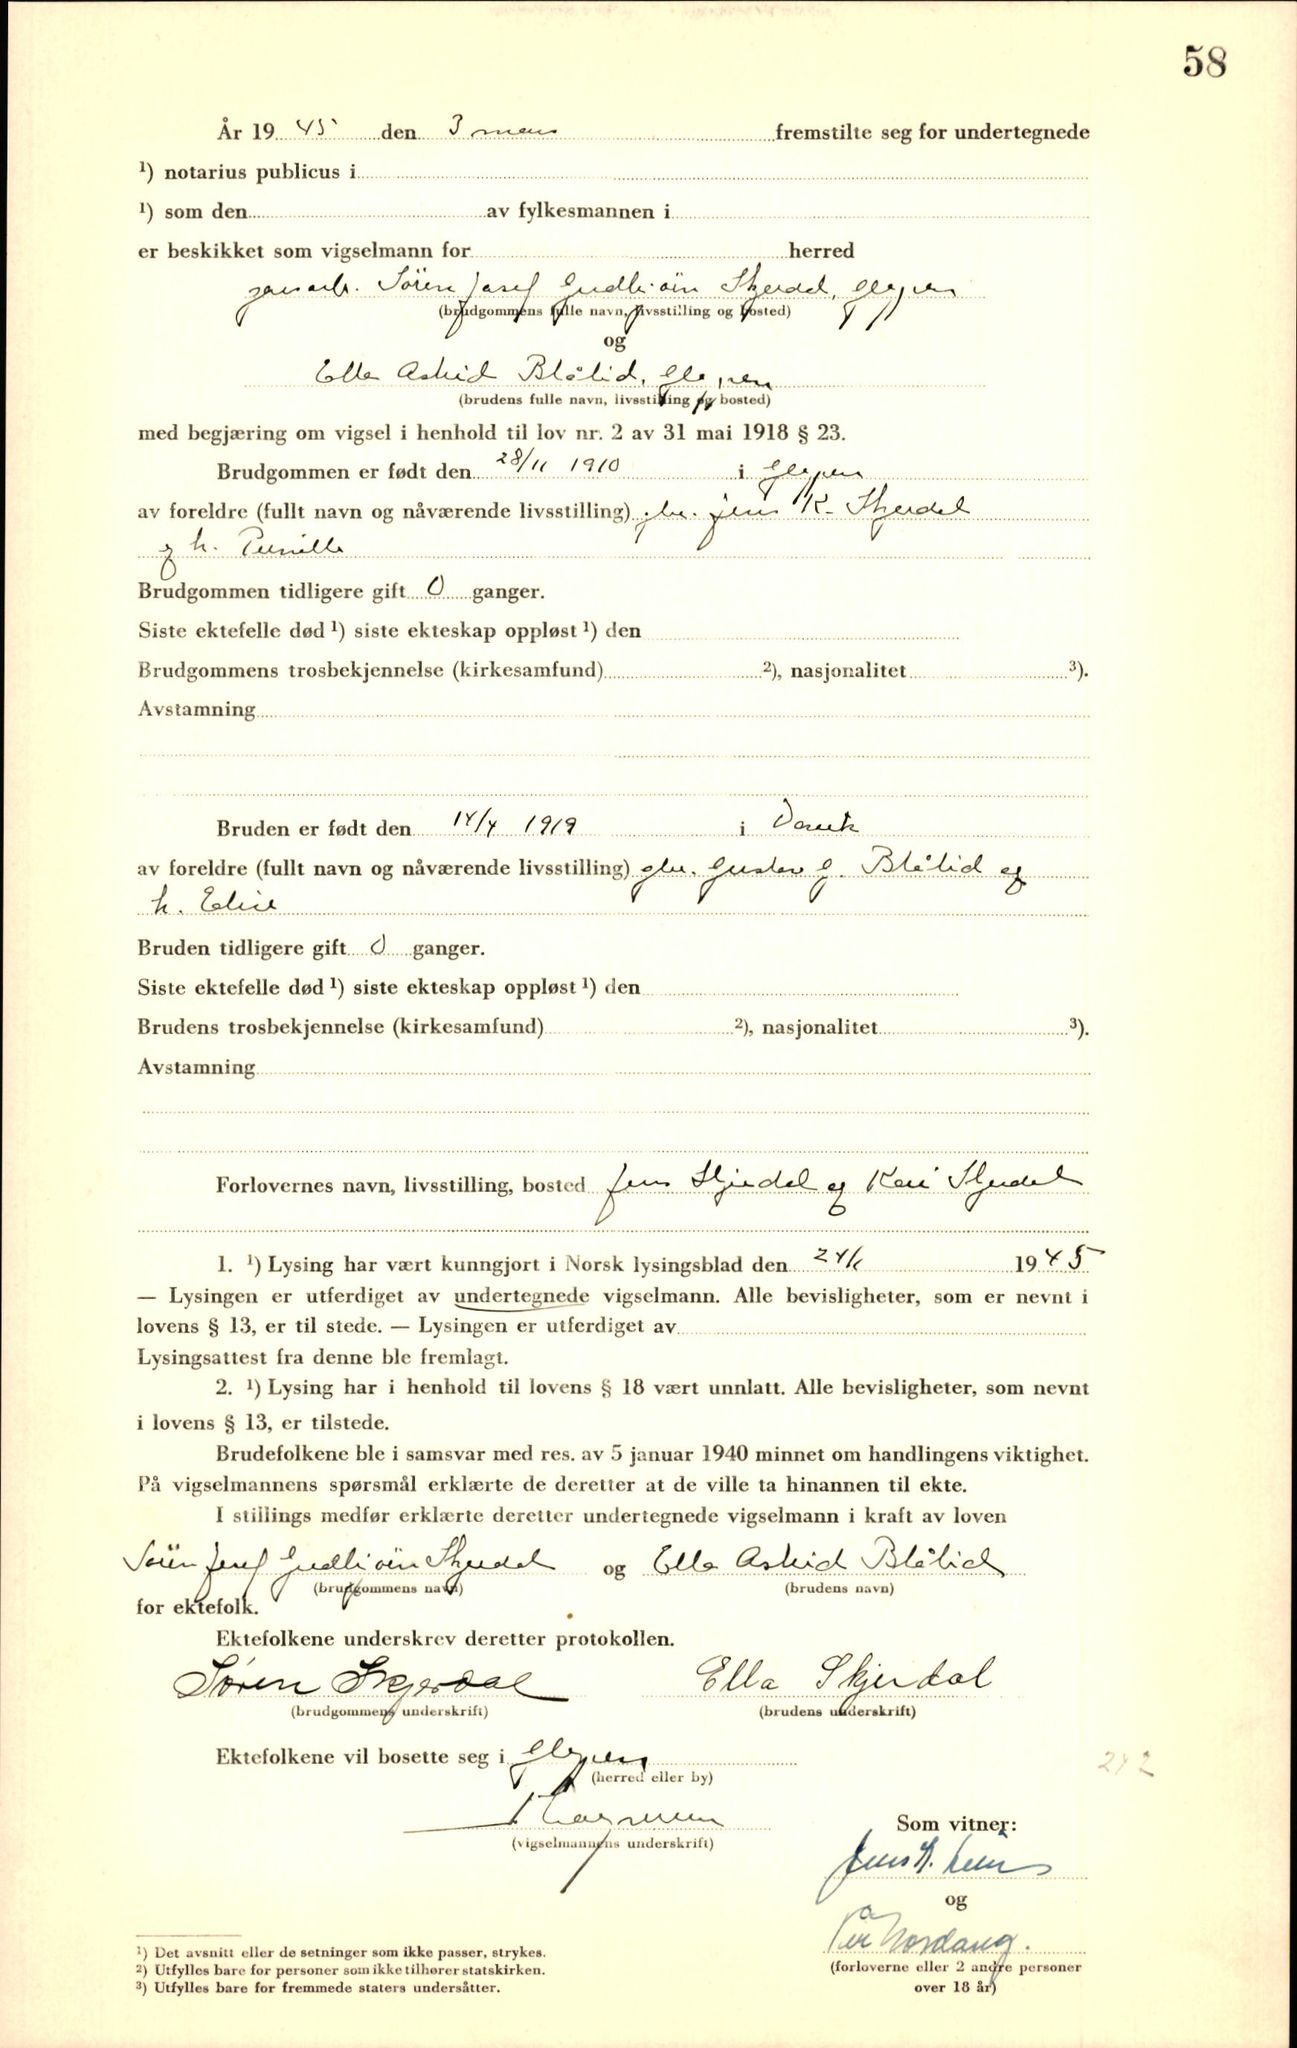 58
År 19 45 den 3 mars fremstilte seg for undertegnede
1) notarius publicus i
1) som den av fylkesmannen i
er beskikket som vigselmann for herred
Søren Josef Skjerdal, Gloppen
(brudgommens fulle navn, livsstilling og bosted)
og
Ella Astrid Blålid, Gloppen
(brudens fulle navn, livsstilling og bosted)
med begjæring om vigsel i henhold til lov nr. 2 av 31 mai 1918 § 23.
Brudgommen er født den 28/11 1910 i Gloppen
av foreldre (fullt navn og nåværende livsstilling) gbr. Jens K. Skjerdal
og h. Pernille
Brudgommen tidligere gift 0 ganger.
Siste ektefelle død 1) siste ekteskap oppløst 1) den
Brudgommens trosbekjennelse (kirkesamfund) 2), nasjonalitet 3).
Avstamning
Bruden er født den 14/4 1919 i
av foreldre (fullt navn og nåværende livsstilling) gbr. Gustav G. Blålid og
h. Elise
Bruden tidligere gift 0 ganger.
Siste ektefelle død 1) siste ekteskap oppløst 1) den
Brudens trosbekjennelse (kirkesamfund) 2), nasjonalitet 3).
Avstamning
Forlovernes navn, livsstilling, bosted Jens Skjerdal og Kari Skjerdal
1. 1) Lysing har vært kunngjort i Norsk lysingsblad den 24/1 1945
— Lysingen er utferdiget av undertegnede vigselmann. Alle bevisligheter, som er nevnt i
lovens § 13, er til stede. — Lysingen er utferdiget av
Lysingsattest fra denne ble fremlagt.
2. 1) Lysing har i henhold til lovens § 18 vært unnlatt. Alle bevisligheter, som nevnt
i lovens § 13, er tilstede.
Brudefolkene ble i samsvar med res. av 5 januar 1940 minnet om handlingens viktighet.
På vigselmannens spørsmål erklærte de deretter at de ville ta hinannen til ekte.
I stillings medfør erklærte deretter undertegnede vigselmann i kraft av loven
Søren Josef Skjerdal og Ella Astrid Blålid
(brudgommens navn) (brudens navn)
for ektefolk.
Ektefolkene underskrev deretter protokollen.
Søren Skjerdal Ella Skjerdal
(brudgommens underskrift) (brudens underskrift)
Ektefolkene vil bosette seg i Gloppen
(herred eller by)
242
(vigselmannens underskrift)
Som vitner:
og
Per Nordang.
(forloverne eller 2 andre personer
over 18 år)
1) Det avsnitt eller de setninger som ikke passer, strykes.
2) Utfylles bare for personer som ikke tilhører statskirken.
3) Utfylles bare for fremmede staters undersåtter.